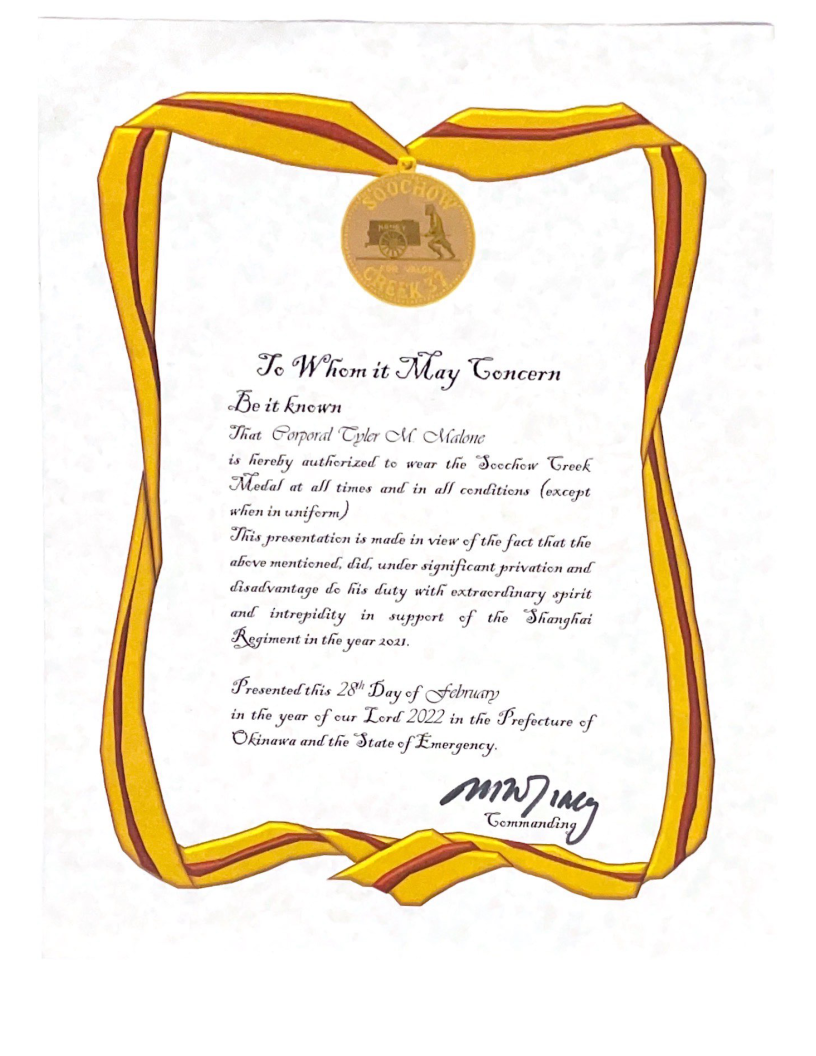 SOOCHOW
HONEY
FOR VALOR
CREEK 37
To Whom it May Concern
Be it known
That Corporal Tyler M. Malone
is hereby authorized to wear the Soochow Creek
Medal at all times and in all conditions (except
when in uniform)
This presentation is made in view of the fact that the
above mentioned, did, under significant privation and
disadvantage do his duty with extraordinary spirit
and intrepidity in support of the Shanghai
Regiment in the year 2021.
Presented this 28th Day of February
in the year of our Lord 2022 in the Prefecture of
Okinawa and the State of Emergency.
Commanding